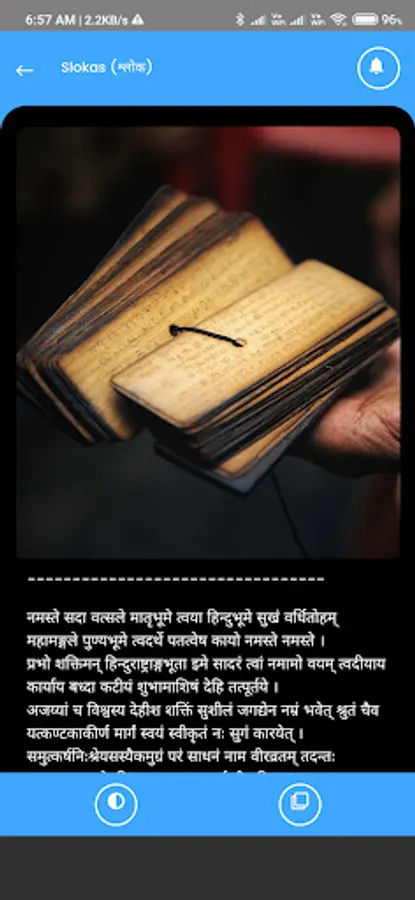 6:57 AM | 2.2KB/s
Vo WiFi Vo WiFi 96%
Slokas (श्लोक)
----------------------------------
नमस्ते सदा वत्सले मातृभूमे त्वया हिन्दुभूमे सुखं वर्धितोहम्
महामङ्गले पुण्यभूमे त्वदर्थे पतत्वेष कायो नमस्ते नमस्ते ।
प्रभो शक्तिमन् हिन्दुराष्ट्राङ्गभूता इमे सादरं त्वां नमामो वयम् त्वदीयाय
कार्याय बध्दा कटीयं शुभामाशिषं देहि तत्पूर्तये ।
अजय्यां च विश्वस्य देहीश शक्तिं सुशीलं जगद्येन नम्रं भवेत् श्रुतं चैव
यत्कण्टकाकीर्ण मार्गं स्वयं स्वीकृतं नः सुगं कारयेत् ।
समुत्कर्षनिःश्रेयसस्यैकमुग्रं परं साधनं नाम वीरव्रतम् तदन्तः